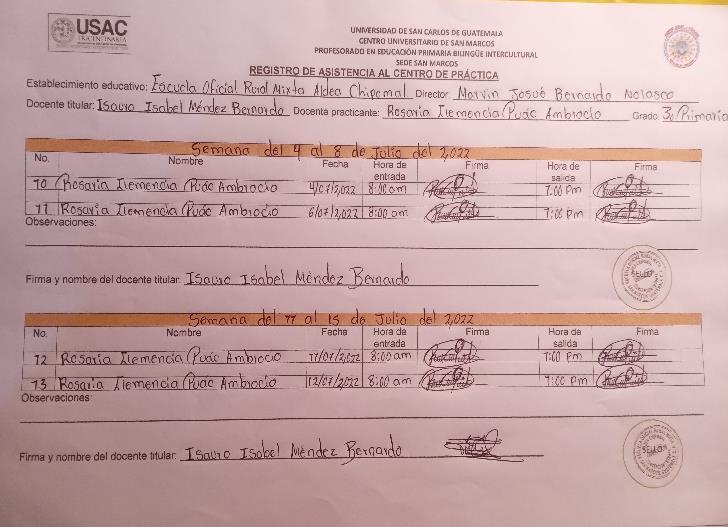 USAC
TRICENTENARIA
UNIVERSIDAD DE SAN CARLOS DE GUATEMALA
CENTRO UNIVERSITARIO DE SAN MARCOS
PROFESORADO EN EDUCACIÓN PRIMARIA BILINGÜE INTERCULTURAL
SEDE SAN MARCOS
REGISTRO DE ASISTENCIA AL CENTRO DE PRÁCTICA
Establecimiento educativo: Escuela Oficial Rural Mixta Aldea Chipemal Director: Marvin Josué Bernardo Nolasco
Docente titular: Isauro Isabel Méndez Bernardo Docente practicante: Rosaria Clemencia Puác Ambrocio Grado: 3o Primaria
Semana del 4 al 8 de Julio del 2,022
No. Nombre Fecha Hora de entrada Firma Hora de salida Firma
10 Rosaria Clemencia Puác Ambrocio 4/07/2,022 8:00 am 1:00 pm
11 Rosaria Clemencia Puác Ambrocio 6/07/2,022 8:00 am 1:00 pm
Observaciones:
SELLO
Firma y nombre del docente titular: Isauro Isabel Méndez Bernardo
Semana del 11 al 15 de Julio del 2,022
No. Nombre Fecha Hora de entrada Firma Hora de salida Firma
12 Rosaria Clemencia Puác Ambrocio 11/07/2,022 8:00 am 1:00 pm
13 Rosaria Clemencia Puác Ambrocio 12/07/2,022 8:00 am 1:00 pm
Observaciones:
Firma y nombre del docente titular: Isauro Isabel Méndez Bernardo
SELLO